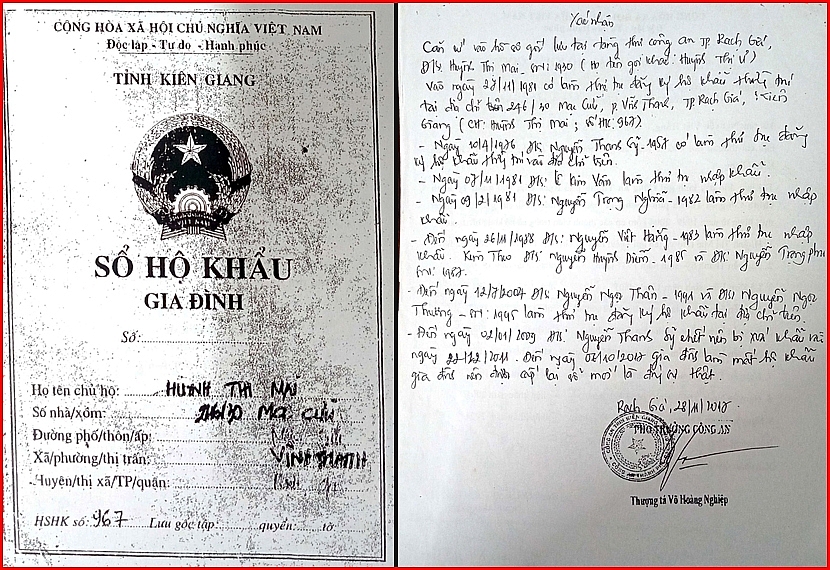 CỘNG HÒA XÃ HỘI CHỦ NGHĨA VIỆT NAM
Độc lập - Tự do - Hạnh phúc
TỈNH KIÊN GIANG
SỔ HỘ KHẨU
GIA ĐÌNH
Số:
Họ tên chủ hộ: HUỲNH THỊ MAI
Số nhà/xóm: 246/30 Mạc Cửu
Đường phố/thôn/ấp:
Xã/phường/thị trấn: VĨNH THANH
Huyện/thị xã/TP/quận:
HSHK số: 967 Lưu gốc tập: quyển: tờ
Xác nhận
Căn cứ vào hồ sơ gốc lưu tại tàng thư công an TP. Rạch Giá,
Đ/S. Huỳnh Thị Mai - sn: 1930 (Họ tên gọi khác: Huỳnh Thị Ư)
Vào ngày 27/11/1981 có làm thủ tục đăng ký hộ khẩu thường trú
tại địa chỉ trên 246/30 Mạc Cửu, P. Vĩnh Thanh, TP. Rạch Giá, Kiên
Giang (CH: Huỳnh Thị Mai; số HK: 967)
- Ngày 10/4/1976 Đ/S Nguyễn Thanh Sỹ - 1957 có làm thủ tục đăng
ký hộ khẩu thường trú vào địa chỉ trên.
- Ngày 07/11/1981 Đ/S: Lê Kim Vân làm thủ tục nhập khẩu.
- Ngày 09/2/1981 Đ/S: Nguyễn Trọng Nghĩa - 1982 làm thủ tục nhập
khẩu.
- Đến ngày 26/11/1988 Đ/S: Nguyễn Việt Hằng - 1983 làm thủ tục nhập
khẩu. Kèm Theo Đ/S Nguyễn Huỳnh Diễm - 1985 và Đ/S: Nguyễn Trọng
sn: 1987.
- Đến ngày 12/7/2004 Đ/S Nguyễn Ngọc Thân - 1991 và Đ/S: Nguyễn Ngọc
Thương - sn: 1995 làm thủ tục đăng ký hộ khẩu tại địa chỉ trên.
- Đến ngày 02/01/2009 Đ/S: Nguyễn Thanh Sỹ chết nên bị xoá khẩu vào
ngày 22/12/2011. Đến ngày 02/10/2017 gia đình làm mất hộ khẩu
gia đình nên được cấp lại sổ mới là đúng sự thật.
Rạch Giá, 28/11/2017
PHÓ TRƯỞNG CÔNG AN
Thượng tá Võ Hoàng Nghiệp